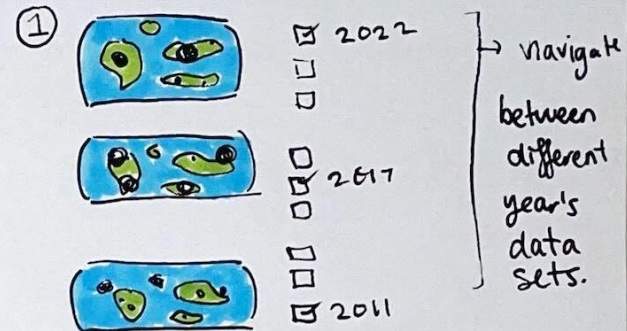 1
2022
2017
2011
navigate
between
different
year's
data
sets.